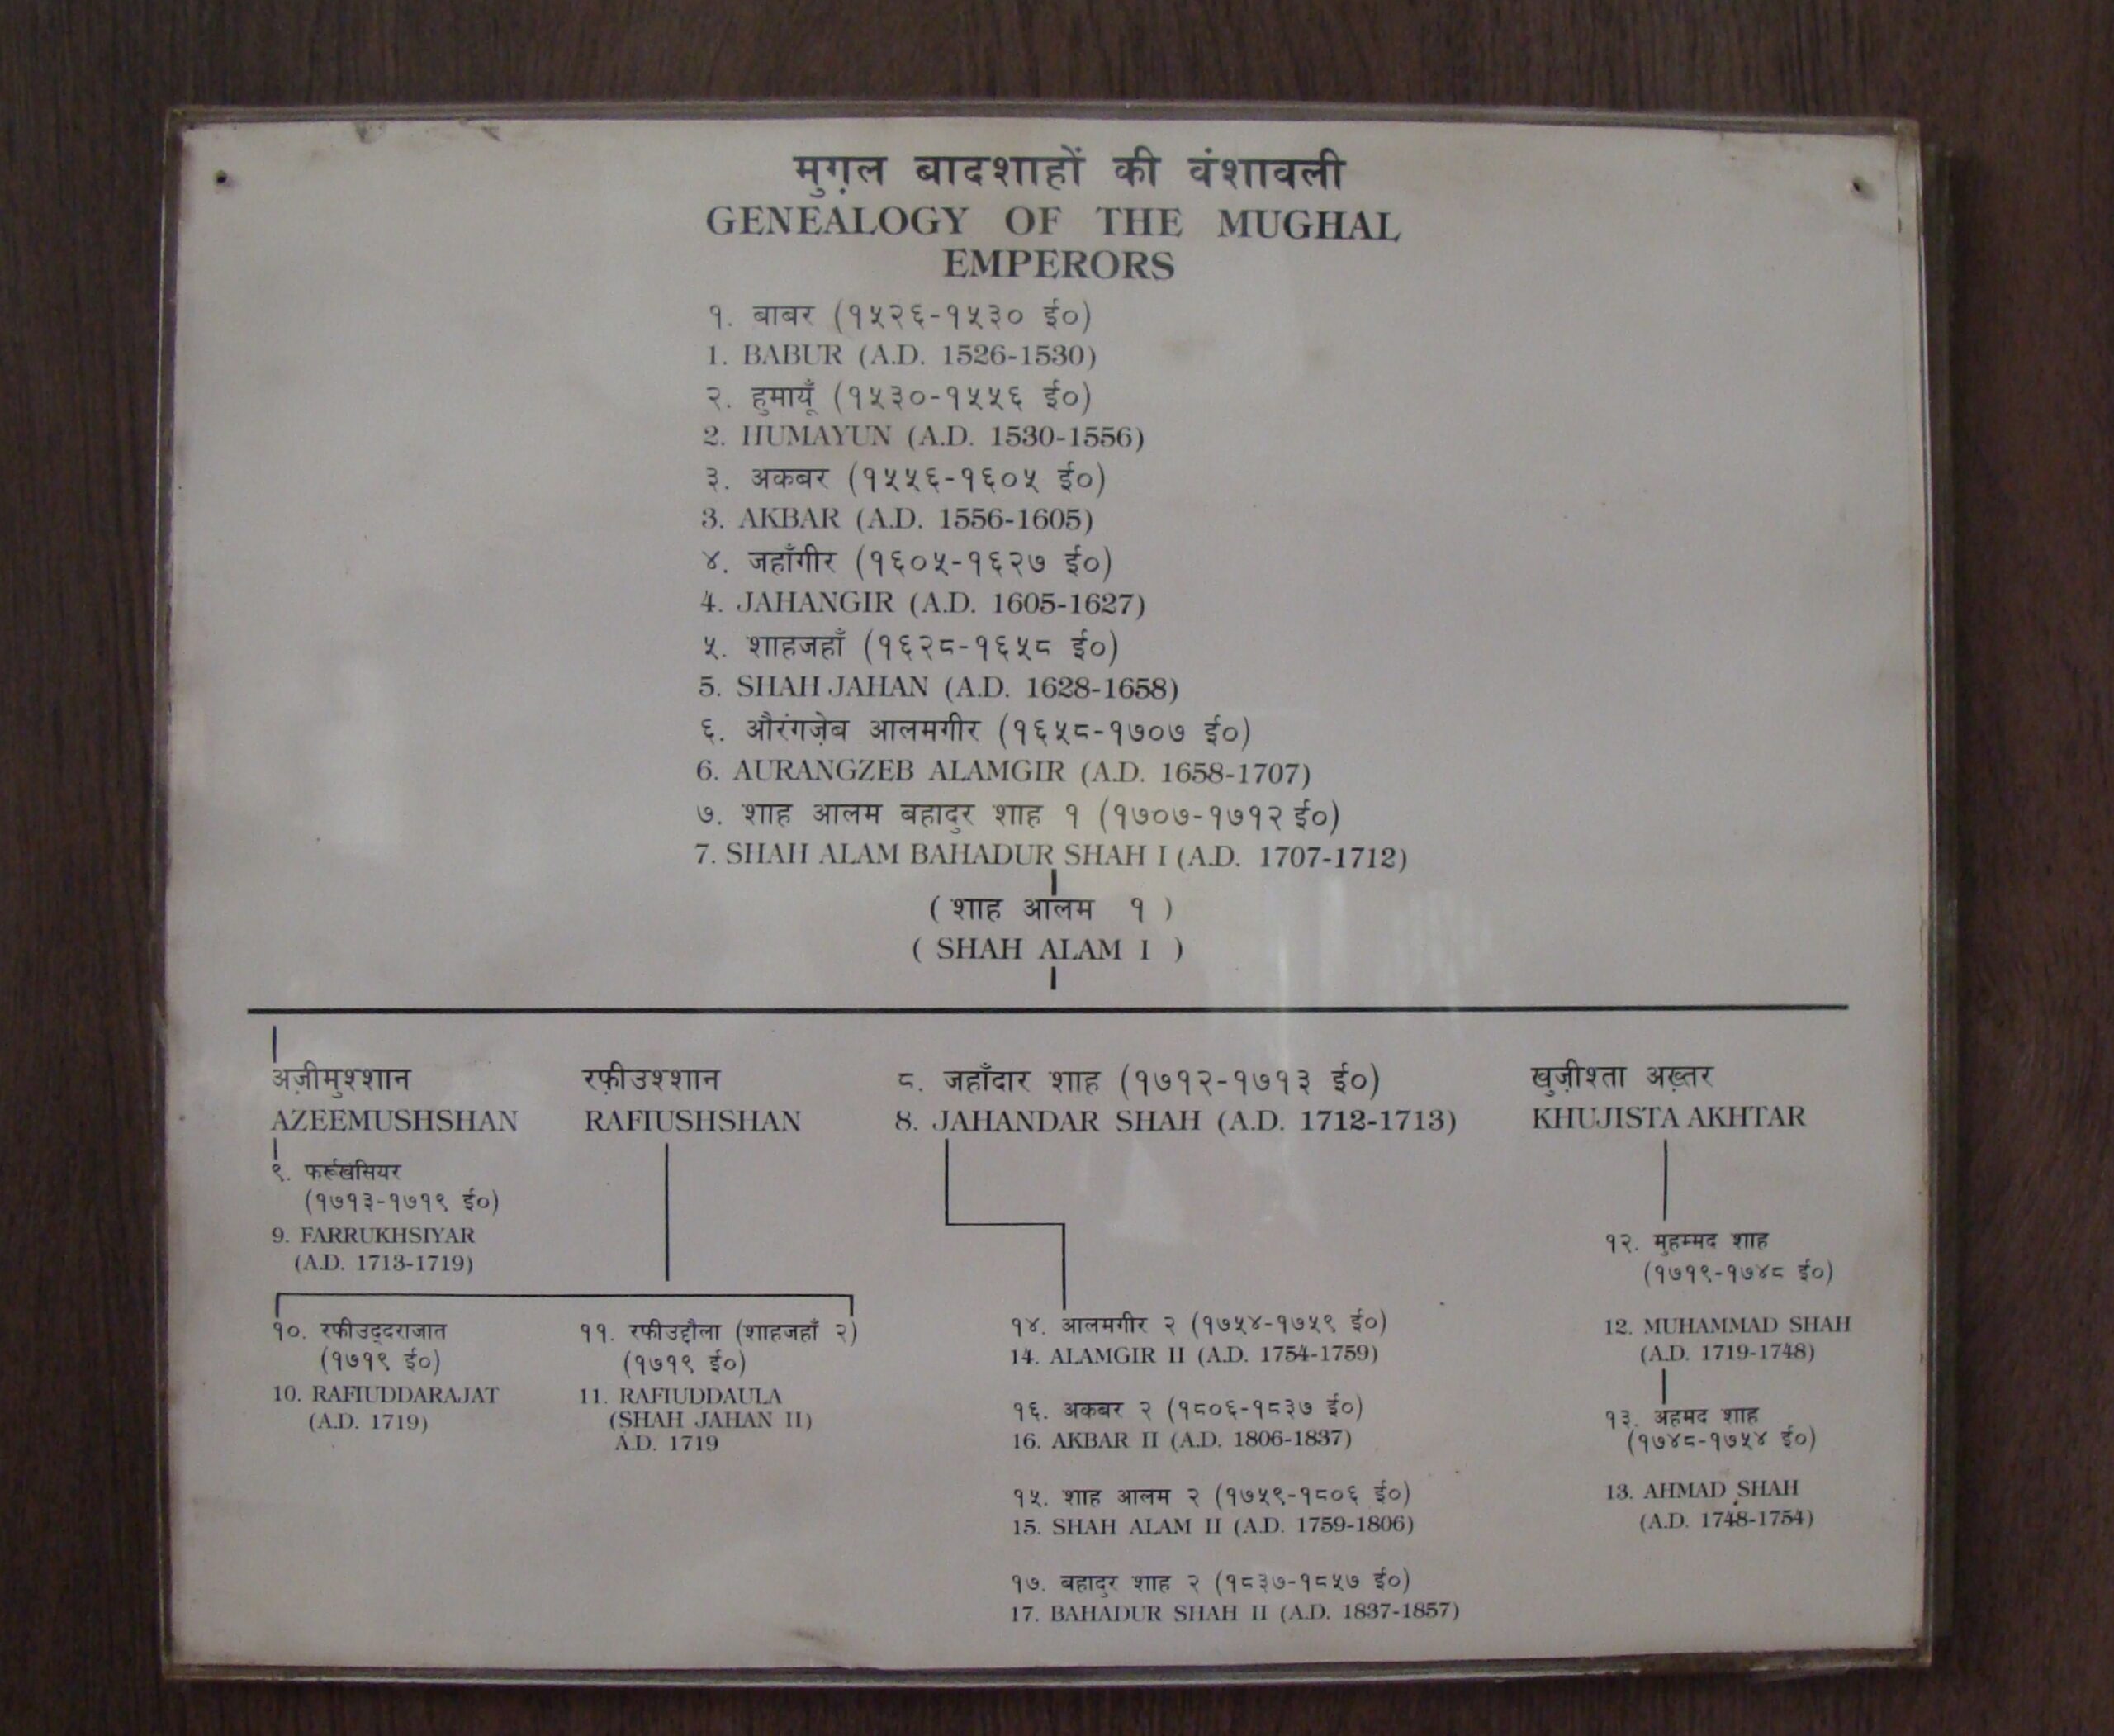 मुग़ल बादशाहों की वंशावली
GENEALOGY OF THE MUGHAL
EMPERORS
१. बाबर (१५२६-१५३० ई०)
1. BABUR (A.D. 1526-1530)
२. हुमायूँ (१५३०-१५५६ ई०)
2. HUMAYUN (A.D. 1530-1556)
३. अकबर (१५५६-१६०५ ई०)
3. AKBAR (A.D. 1556-1605)
४. जहाँगीर (१६०५-१६२७ ई०)
4. JAHANGIR (A.D. 1605-1627)
५. शाहजहाँ (१६२८-१६५८ ई०)
5. SHAH JAHAN (A.D. 1628-1658)
६. औरंगज़ेब आलमगीर (१६५८-१७०७ ई०)
6. AURANGZEB ALAMGIR (A.D. 1658-1707)
७. शाह आलम बहादुर शाह १ (१७०७-१७१२ ई०)
7. SHAH ALAM BAHADUR SHAH I (A.D. 1707-1712)
( शाह आलम १ )
( SHAH ALAM I )
अज़ीमुश्शान
AZEEMUSHSHAN
९. फर्रूखसियर
(१७१३-१७१९ ई०)
9. FARRUKHSIYAR
(A.D. 1713-1719)
रफ़ीउश्शान
RAFIUSHSHAN
१०. रफीउद्दराजात
(१७१९ ई०)
10. RAFIUDDARAJAT
(A.D. 1719)
११. रफीउद्दौला (शाहजहाँ २)
(१७१९ ई०)
11. RAFIUDDAULA
(SHAH JAHAN II)
A.D. 1719
८. जहाँदार शाह (१७१२-१७१३ ई०)
8. JAHANDAR SHAH (A.D. 1712-1713)
१४. आलमगीर २ (१७५४-१७५९ ई०)
14. ALAMGIR II (A.D. 1754-1759)
१६. अकबर २ (१८०६-१८३७ ई०)
16. AKBAR II (A.D. 1806-1837)
१५. शाह आलम २ (१७५९-१८०६ ई०)
15. SHAH ALAM II (A.D. 1759-1806)
१७. बहादुर शाह २ (१८३७-१८५७ ई०)
17. BAHADUR SHAH II (A.D. 1837-1857)
खुज़ीश्ता अख़्तर
KHUJISTA AKHTAR
१२. मुहम्मद शाह
(१७१९-१७४८ ई०)
12. MUHAMMAD SHAH
(A.D. 1719-1748)
१३. अहमद शाह
(१७४८-१७५४ ई०)
13. AHMAD SHAH
(A.D. 1748-1754)